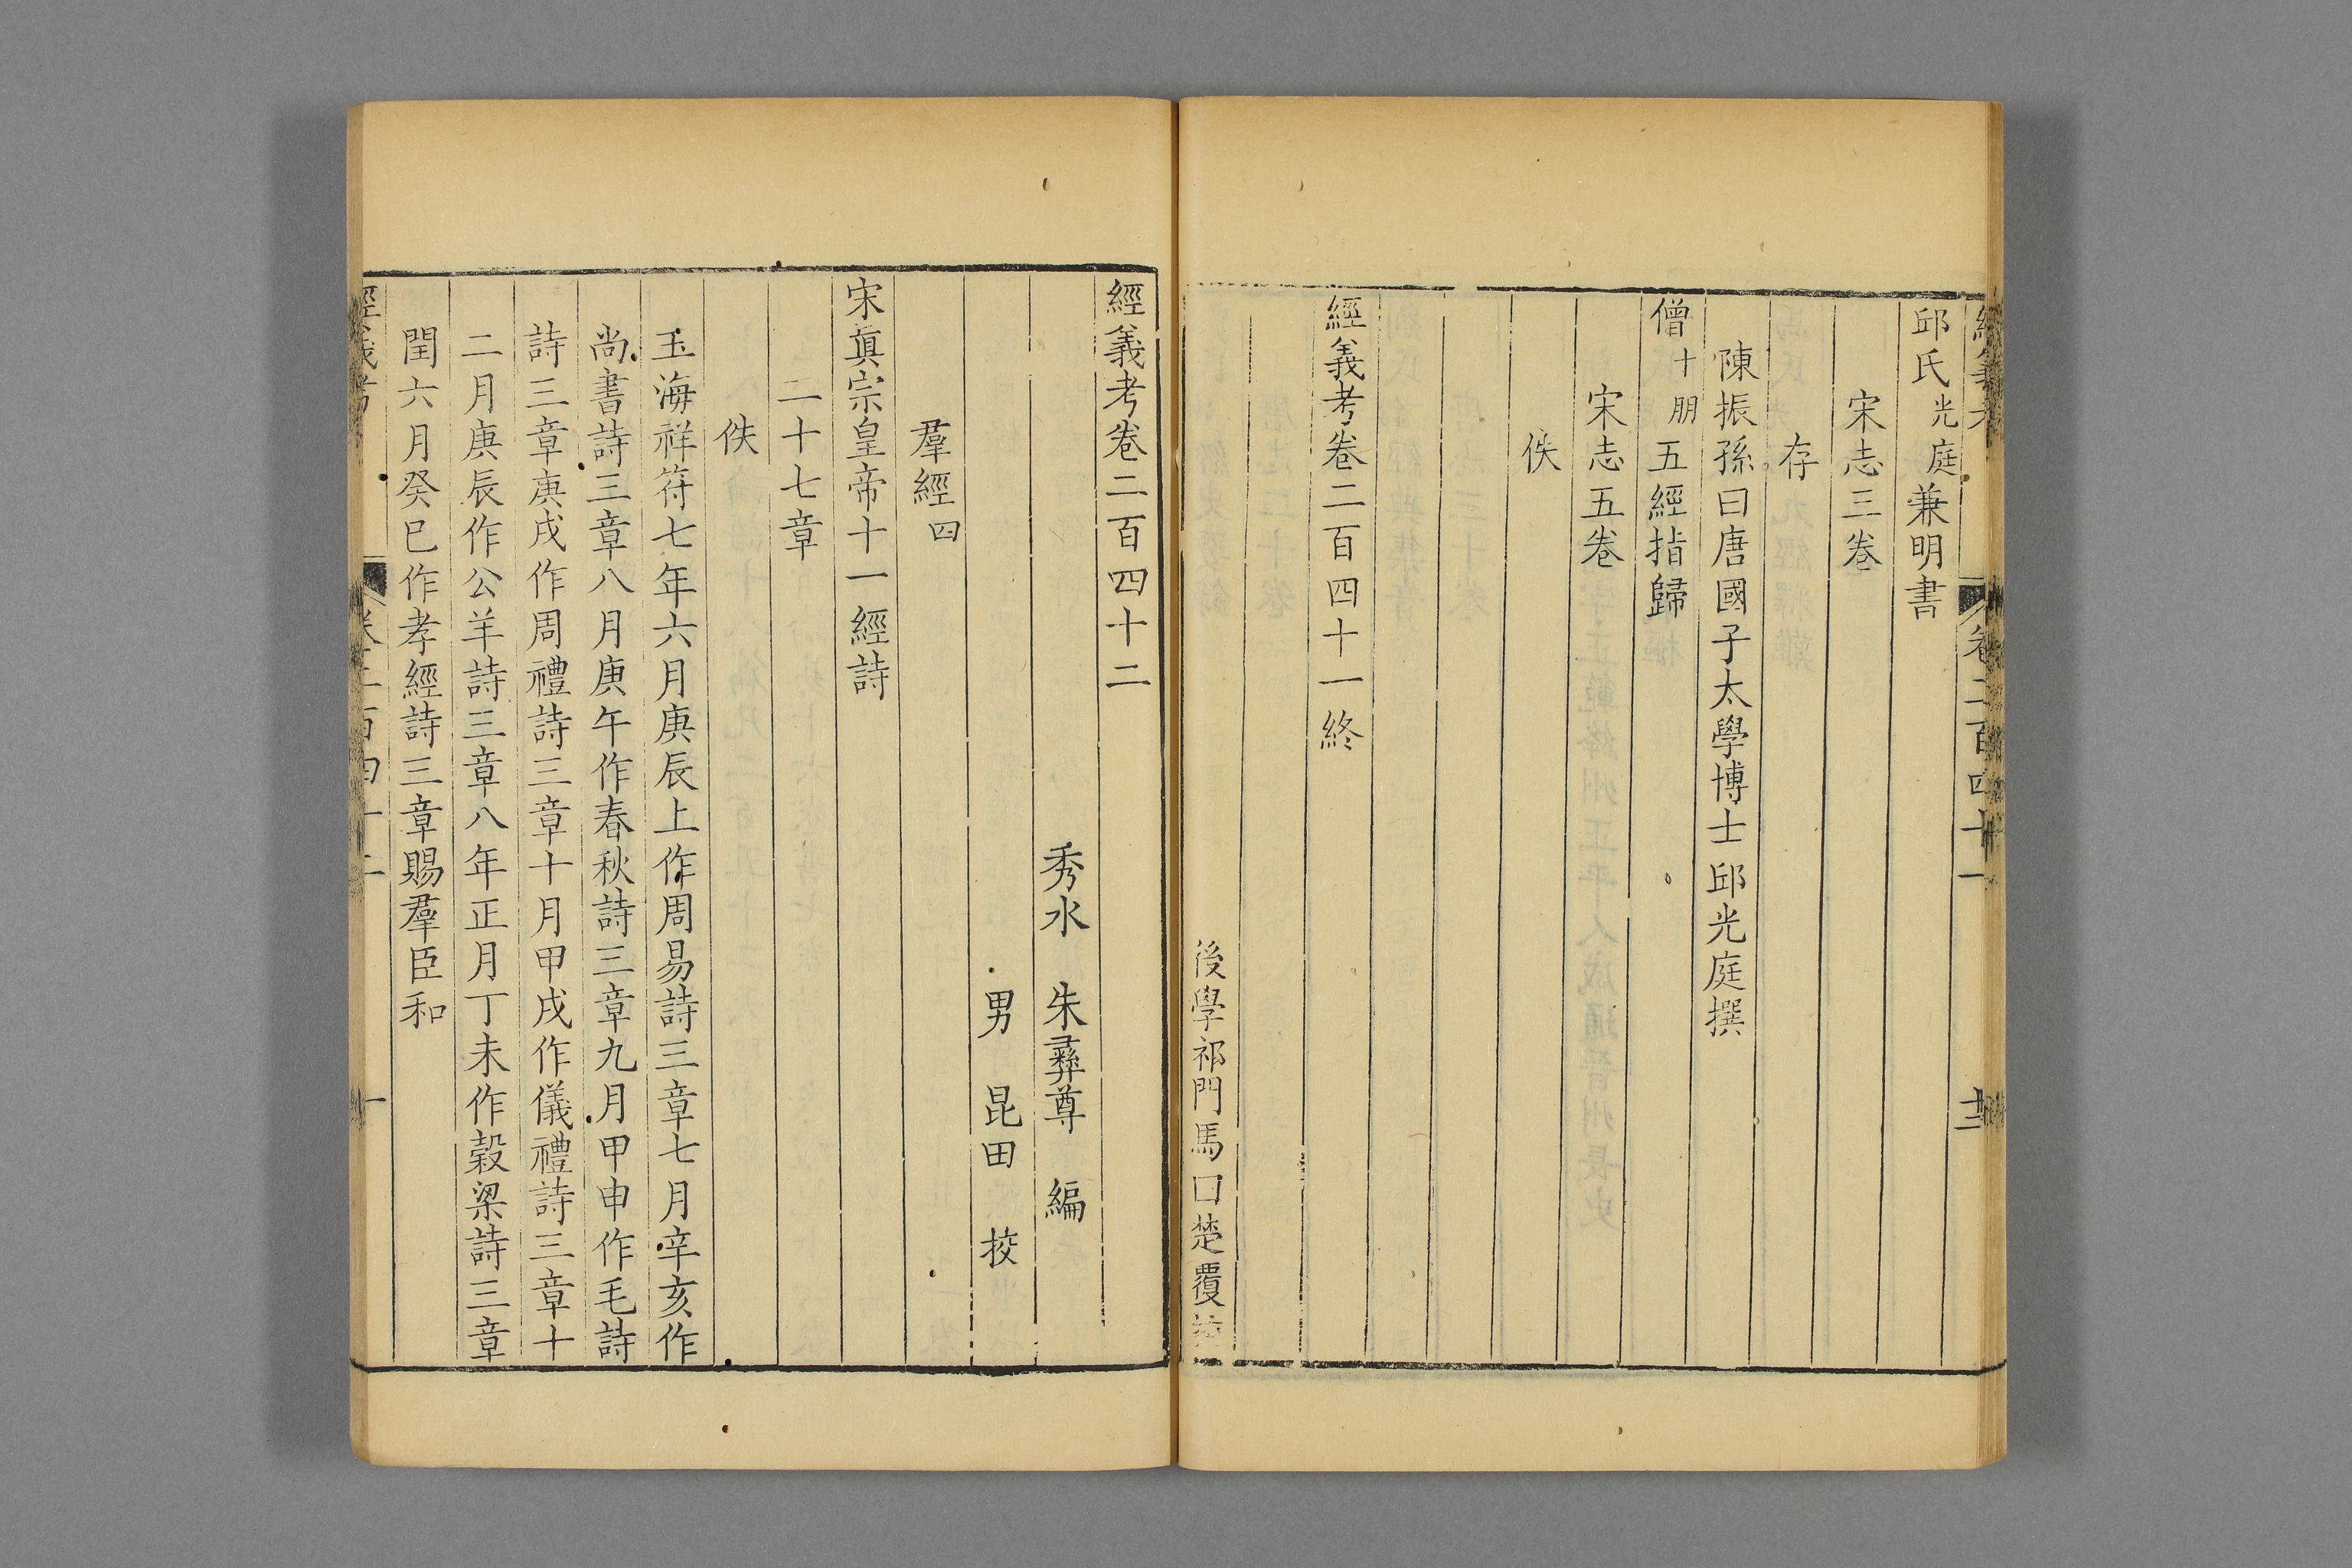 經義考
卷二百四十一
邱氏光庭兼明書
宋志三卷
存
陳振孫曰唐國子太學博士邱光庭撰
僧十朋五經指歸
宋志五卷
佚
經義考卷二百四十一終
後學祁門馬曰楚覆挍
經義考卷二百四十二
秀水 朱彝尊 編
男 昆田 挍
羣經四
宋真宗皇帝十一經詩
二十七章
佚
玉海祥符七年六月庚辰上作周易詩三章七月辛亥作
尚書詩三章八月庚午作春秋詩三章九月甲申作毛詩
詩三章庚戌作周禮詩三章十月甲戌作儀禮詩三章十
二月庚辰作公羊詩三章八年正月丁未作榖梁詩三章
閏六月癸巳作孝經詩三章賜羣臣和
經義考
卷二百四十二
一